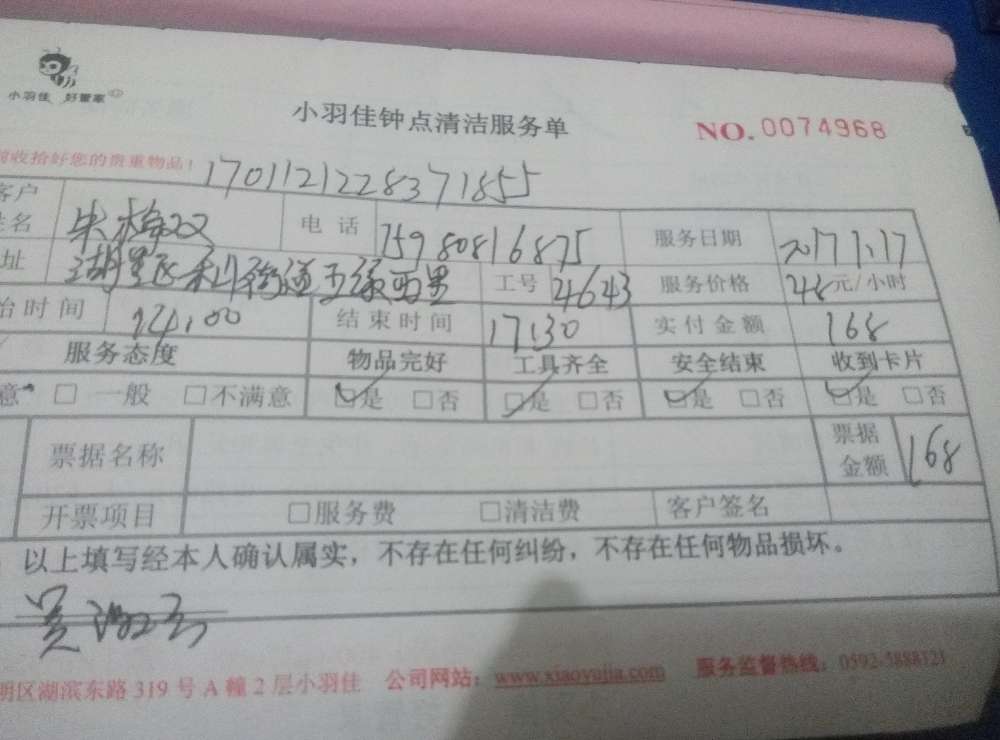 小羽佳 好管家
小羽佳钟点清洁服务单
NO. 0074968
收拾好您的贵重物品！
170112122837 1855
客户姓名 朱梅双 电话 15980816875 服务日期 2017.1.17
址 湖里区 街道 西里 工号 4643 服务价格 48元/小时
始时间 14:00 结束时间 17:30 实付金额 168
服务态度 物品完好 工具齐全 安全结束 收到卡片
意 □一般 □不满意 ☑是 □否 ☑是 □否 ☑是 □否 ☑是 □否
票据名称 票据金额 168
开票项目 □服务费 □清洁费 客户签名
以上填写经本人确认属实，不存在任何纠纷，不存在任何物品损坏。
明区湖滨东路319号A幢2层小羽佳 公司网站：www.xiaoyujia.com 服务监督热线：0592-5888321